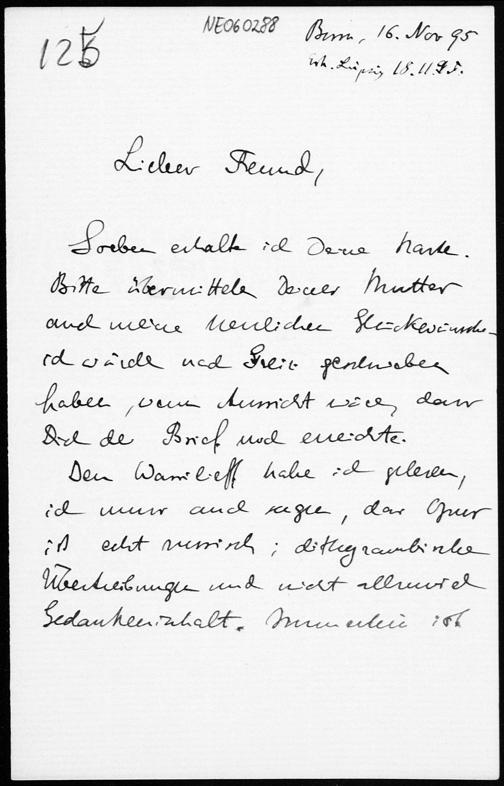 NE060288
125
Bonn, 16. Nov 95
erh. Leipzig 18.11.95.
Lieber Freund,
Soeben erhalte ich Deine Karte.
Bitte übermittele Deiner Mutter
auch meine herzlichen Glückwünsche -
ich würde nach Greiz geschrieben
haben, wenn Aussicht wäre, dass
Dich der Brief noch erreichte.
Den Wassilieff habe ich gelesen,
ich muss auch sagen, das Opus
ist echt russisch; dithyrambische
Übertreibungen und nicht allzuviel
Gedankeninhalt. Immerhin ist